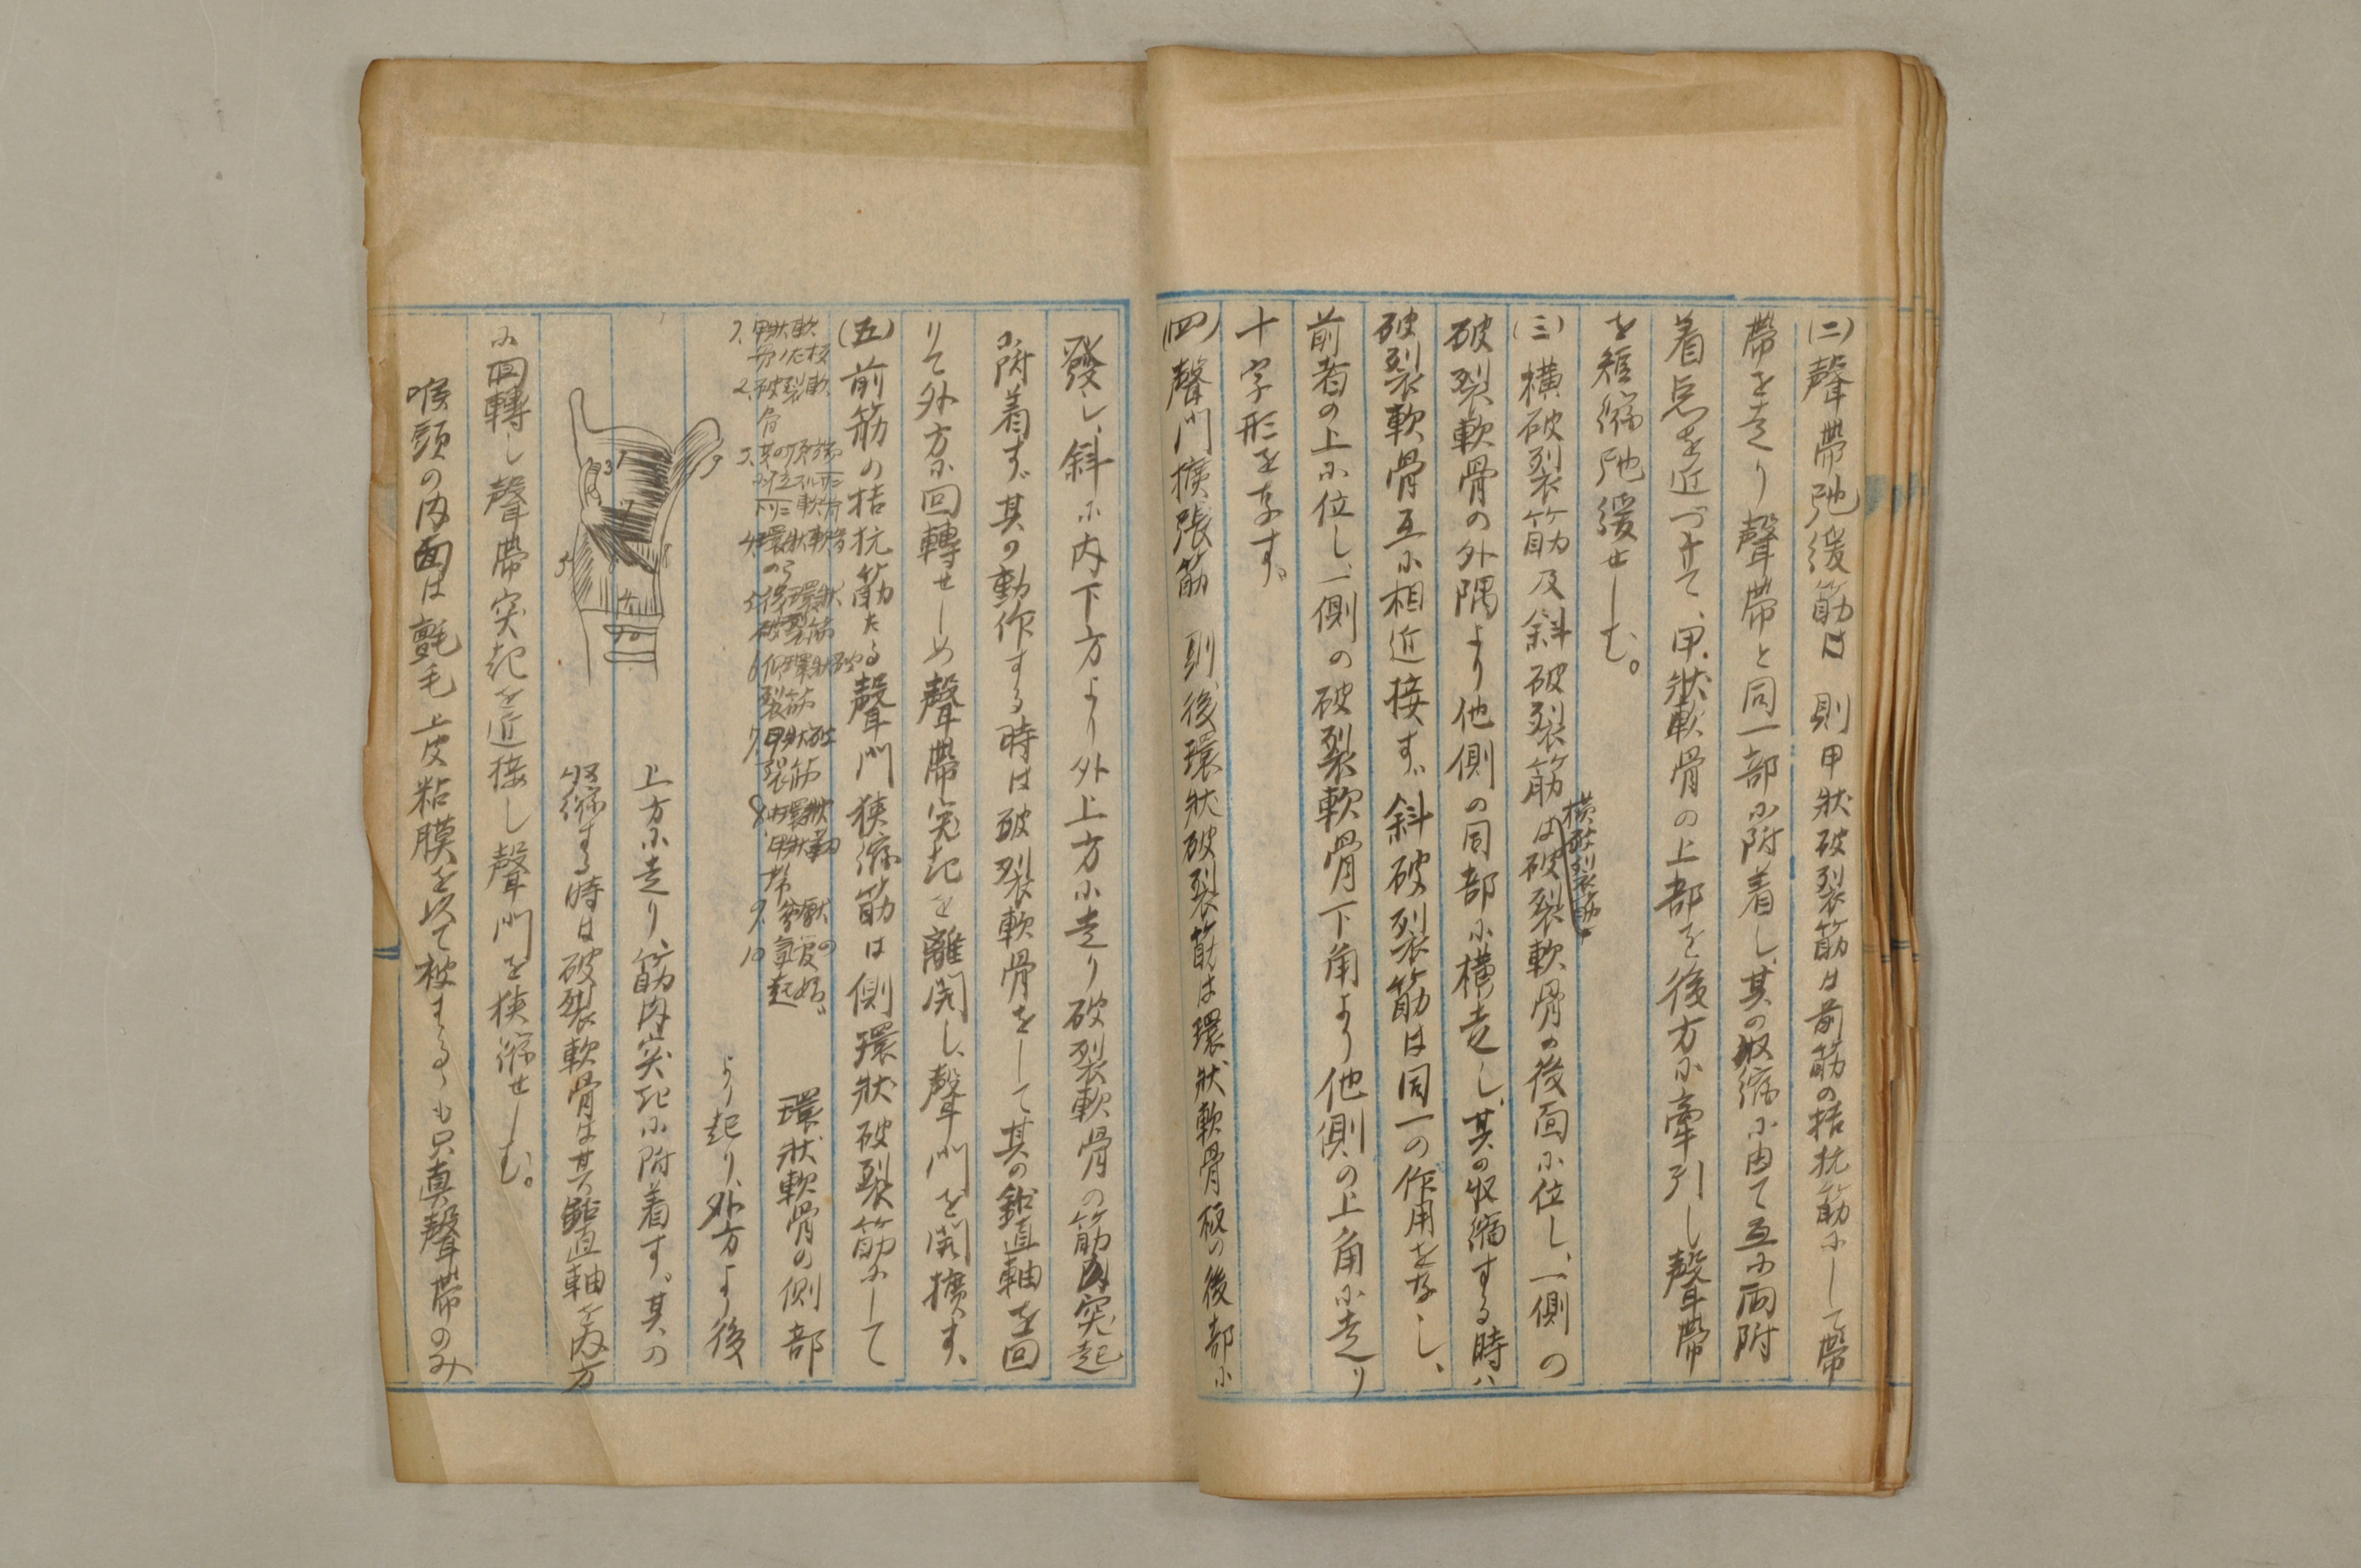 (二)聲帶弛緩筋は 則甲狀破裂筋は前筋の拮抗筋にして帶
帶を走り聲帶と同一部に附着し、其の収縮に由て互に両附
着点を近づけて、甲狀軟骨の上部を後方に牽引し聲帶
を短縮弛緩せしむ。
(三)横破裂筋及斜破裂筋は破裂軟骨の後面に位し、一側の
横破裂筋は
破裂軟骨の外隅より他側の同部に横走し、其の収縮する時ハ
破裂軟骨互に相近接す、斜破裂筋は同一の作用をなし、
前者の上に位し、一側の破裂軟骨下角より他側の上角に走り
十字形を存す。
(四)聲門擴張筋 則後環狀破裂筋は環狀軟骨板の後部に
發し、斜に内下方より外上方に走り破裂軟骨の筋肉突起
に附着す、其の動作する時は破裂軟骨をして其の鉛直軸を回
りて外方に回轉せしめ聲帶突起を離開し、聲門を開擴す、
(五)前筋の拮抗筋たる聲門狭縮筋は側環狀破裂筋にして
1、甲狀軟
骨ノ左板
2、破裂軟
骨
4、環狀軟骨
5、後環狀
破裂筋
6、側環狀破
裂筋
7、甲狀破
裂筋
8、内環狀
甲狀靭
帶
9、會厭
10
環狀軟骨の側部
より起り、外方より後
上方に走り、筋肉突起に附着す。其の
収縮する時は破裂軟骨は其鉛直軸を内方
に回轉し聲帶突起を近接し聲門を狭縮せしむ。
喉頭の内面は氈毛上皮粘膜を以て被はるゝも只眞聲帶のみ